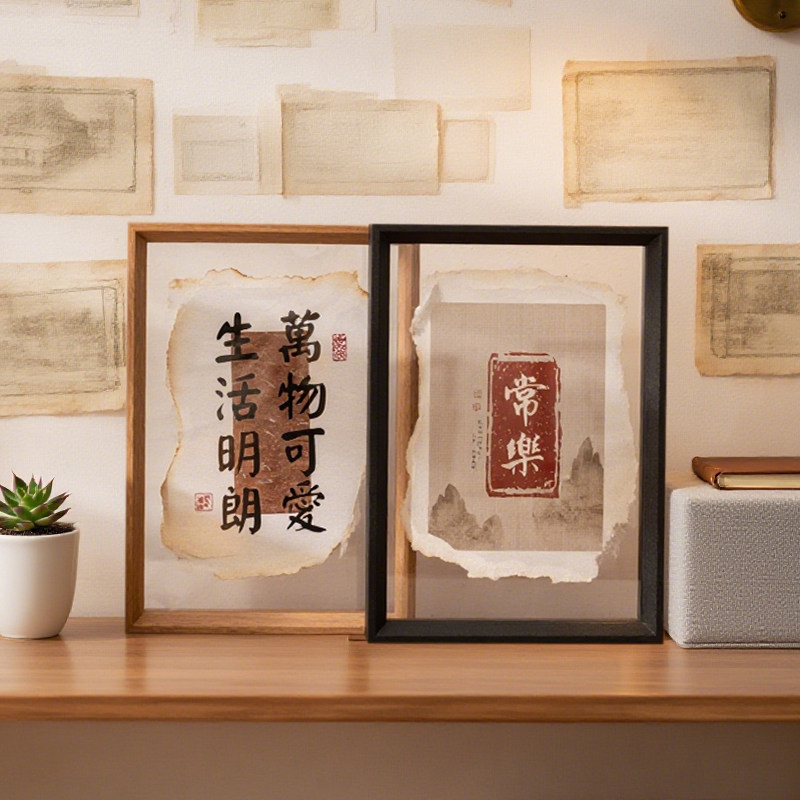 萬物可愛
生活明朗
常樂